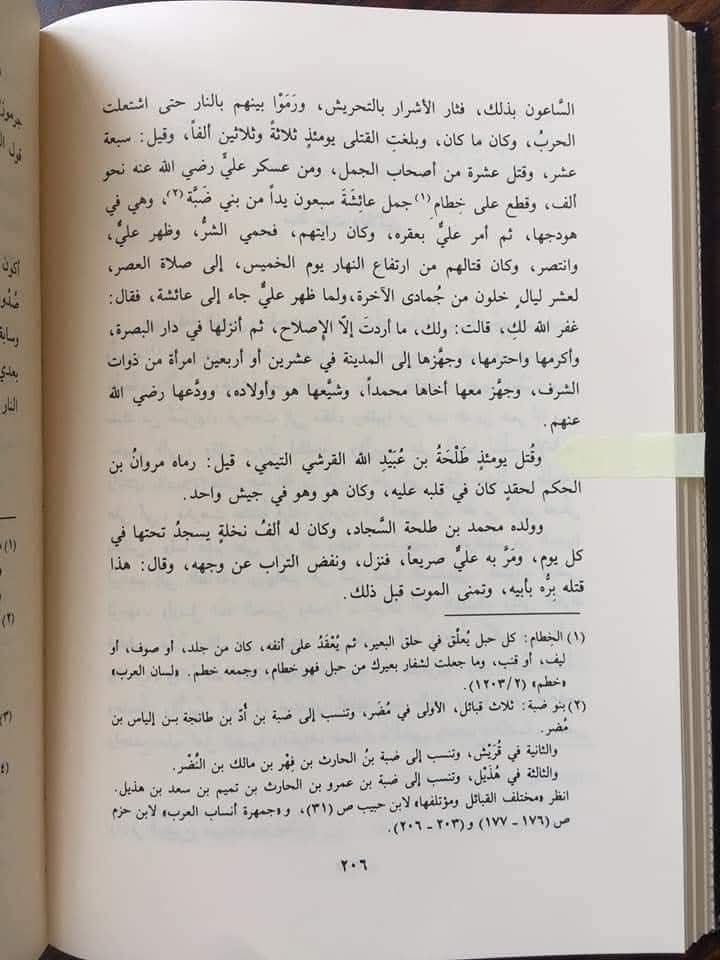 السَّاعون بذلك، فثار الأشرار بالتحريش، ورَمَوْا بينهم بالنار حتى اشتعلت
الحربُ، وكان ما كان، وبلغتِ القتلى يومئذٍ ثلاثةً وثلاثين ألفاً، وقيل: سبعة
عشر، وقتل عشرة من أصحاب الجمل، ومن عسكر عليٍّ رضي الله عنه نحو
ألف، وقطع على خِطام(١) جمل عائِشَةَ سبعون يداً من بني ضَبَّة(٢)، وهي في
هودجها، ثم أمر عليٌّ بعقره، وكان رايتهم، فحمي الشرُّ، وظهر عليٌّ،
وانتصر، وكان قتالهم من ارتفاع النهار يوم الخميس، إلى صلاة العصر،
لعشر ليالٍ خلون من جُمادى الآخرة،ولما ظهر عليٌّ جاء إلى عائشة، فقال:
غفر الله لكِ، قالت: ولك، ما أردتَ إلّا الإصلاح، ثم أنزلها في دار البصرة،
وأكرمها واحترمها، وجهَّزها إلى المدينة في عشرين أو أربعين امرأة من ذوات
الشرف، وجهَّز معها أخاها محمداً، وشيَّعها هو وأولاده، وودَّعها رضي الله
عنهم.
وقُتل يومئذٍ طَلْحَةُ بن عُبَيْدِ الله القرشي التيمي، قيل: رماه مروانُ بن
الحكم لحقدٍ كان في قلبه عليه، وكان هو وهو في جيش واحد.
وولده محمد بن طلحة السَّجاد، وكان له ألفُ نخلةٍ يسجدُ تحتها في
كل يوم، ومَرَّ به عليٌّ صريعاً، فنزل، ونفض التراب عن وجهه، وقال: هذا
قتله بِرُّه بأبيه، وتمنى الموت قبل ذلك.
(١) الخِطام: كل حبل يُعلّق في حلق البعير، ثم يُعْقَدُ على أنفه، كان من جلد، أو صوف، أو
ليف، أو قنب، وما جعلت لشفار بعيرك من حبل فهو خطام، وجمعه خطم. «لسان العرب»
«خطم» (١٢٠٣/٢).
(٢) بنو ضبة: ثلاث قبائل، الأولى في مُضَر، وتنسب إلى ضبة بن أُدّ بن طانجة بن إلياس بن
مُضر.
والثانية في قُرَيْش، وتنسب إلى ضبة بنُ الحارث بن فِهْر بن مالك بن النُّضْر.
والثالثة في هُذَيْل، وتنسب إلى ضبة بن عمرو بن الحارث بن تميم بن سعد بن هذيل.
انظر «مختلف القبائل ومؤتلفها» لابن حبيب ص (٣١)، و«جمهرة أنساب العرب» لابن حزم
ص (١٧٦ - ١٧٧) و(٢٠٣ - ٢٠٦).
٢٠٦